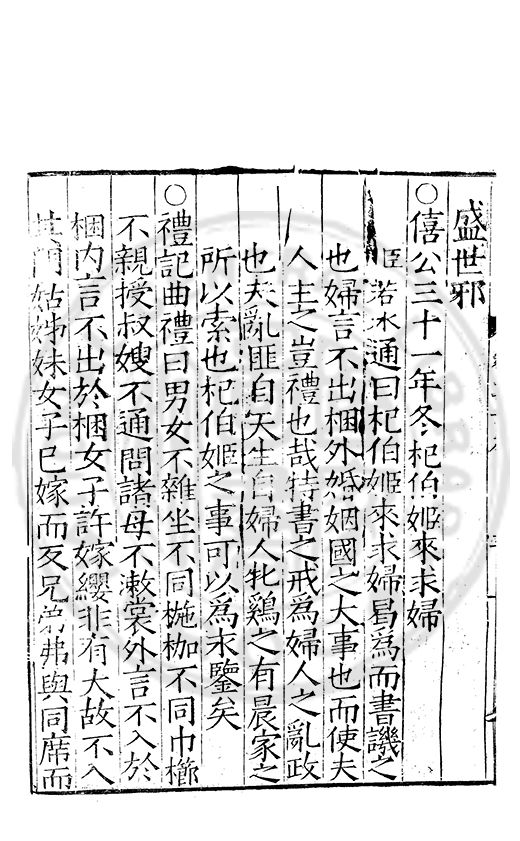 盛世邪
○僖公三十一年冬杞伯姬來求婦
臣若水通曰杞伯姬來求婦曷為而書譏之
也婦言不出梱外婚姻國之大事也而使夫
人主之豈禮也哉特書之戒為婦人之亂政
也夫亂匪自天生自婦人牝鷄之有晨家之
所以索也杞伯姬之事可以為永鑒矣
○禮記曲禮曰男女不雜坐不同椸枷不同巾櫛
不親授叔嫂不通問諸母不漱裳外言不入於
梱內言不出於梱女子許嫁纓非有大故不入
其門姑姊妹女子已嫁而反兄弟弗與同席而